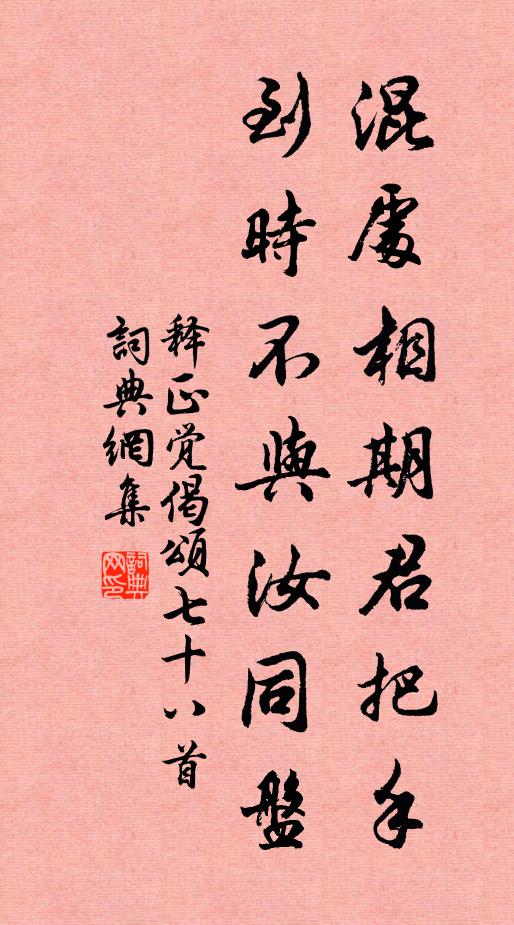 混處相期君把手
到時不與汝同盤
释正觉偈頌七十八首
詞典網集
詞典網印